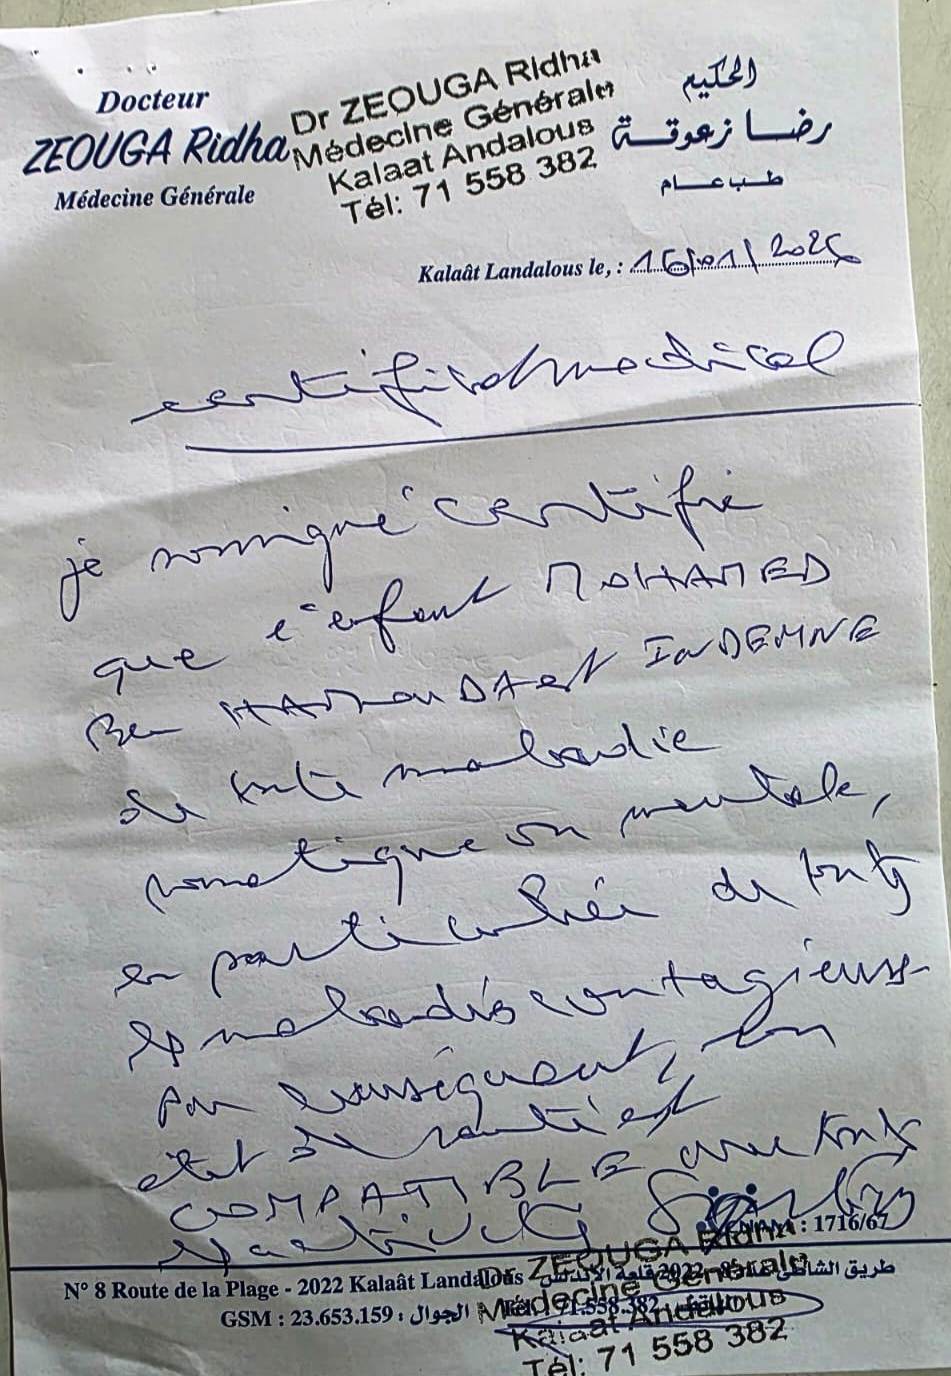 Docteur
ZEOUGA Ridha
Médecine Générale
Dr ZEOUGA Ridha
Médecine Générale
Kalaat Andalous
Tél: 71 558 382
الحكيم
رضا زعوقة
طب عام
Kalaât Landalous le, : 16/01/2025
certificat medical
je soussigné certifie
que l'enfant MOHAMED
Ben HAMOUDA est INDEMNE
de toute maladie
somatique ou mentale,
en particulier de toutes
les maladies contagieuses
Par conséquent, son
état de santé est
COMPATIBLE avec toute
: 1716/67
N° 8 Route de la Plage - 2022 Kalaât Landalous
طريق الشاطئ
2022 قلعة الأندلس
GSM : 23.653.159 : الجوال
71.558.382
Dr ZEOUGA Ridha
Médecine Générale
Kalaat Andalous
Tél: 71 558 382